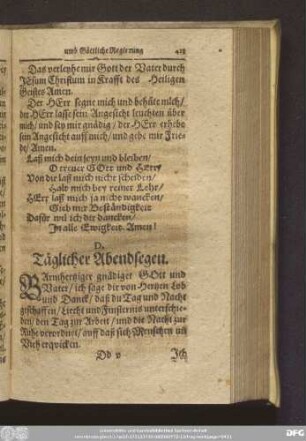 und Göttliche Regierung 425
Das verleyhe mir Gott der Vater durch
JEsum Christum in Krafft des Heiligen
Geistes Amen.
Der HErr segne mich und behüte mich/
der HErr lasse sein Angesicht leuchten über
mich/ und sey mir gnädig/ der HErr erhebe
sein Angesicht auff mich/ und gebe mir Frie-
de/ Amen.
Laß mich dein seyn und bleiben/
O treuer GOtt und HErr/
Von dir laß mich nicht scheiden/
Halt mich bey reiner Lehr/
HErr laß mich ja nicht wancken/
Gieb mir Beständigkeit
Dafür wil ich dir dancken/
In alle Ewigkeit. Amen!
D.
Täglicher Abendsegen.
BArmhertziger gnädiger GOtt und
Vater/ ich sage dir von Hertzen Lob
und Danck/ daß du Tag und Nacht
geschaffen/ Liecht und Finsternis unterschie-
den/ den Tag zur Arbeit/ und die Nacht zur
Ruhe verordnet/ auff daß sich Menschen uñ
Vieh erquicken.
Dd v Ich